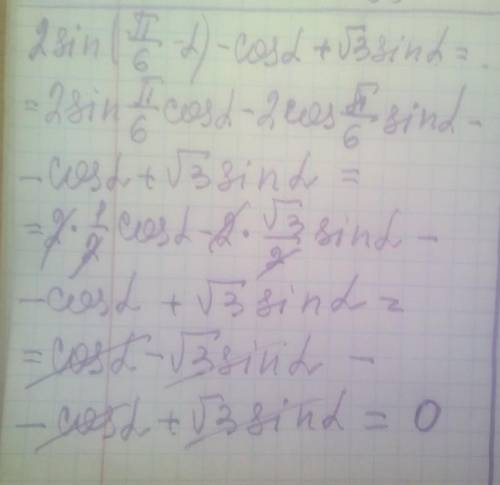 2sin(π/6 - α) - cosα + √3 sinα =
= 2sin π/6 cosα - 2cos π/6 sinα -
- cosα + √3 sinα =
= 2 · 1/2 cosα - 2 · √3/2 sinα -
- cosα + √3 sinα =
= cosα - √3 sinα -
- cosα + √3 sinα = 0